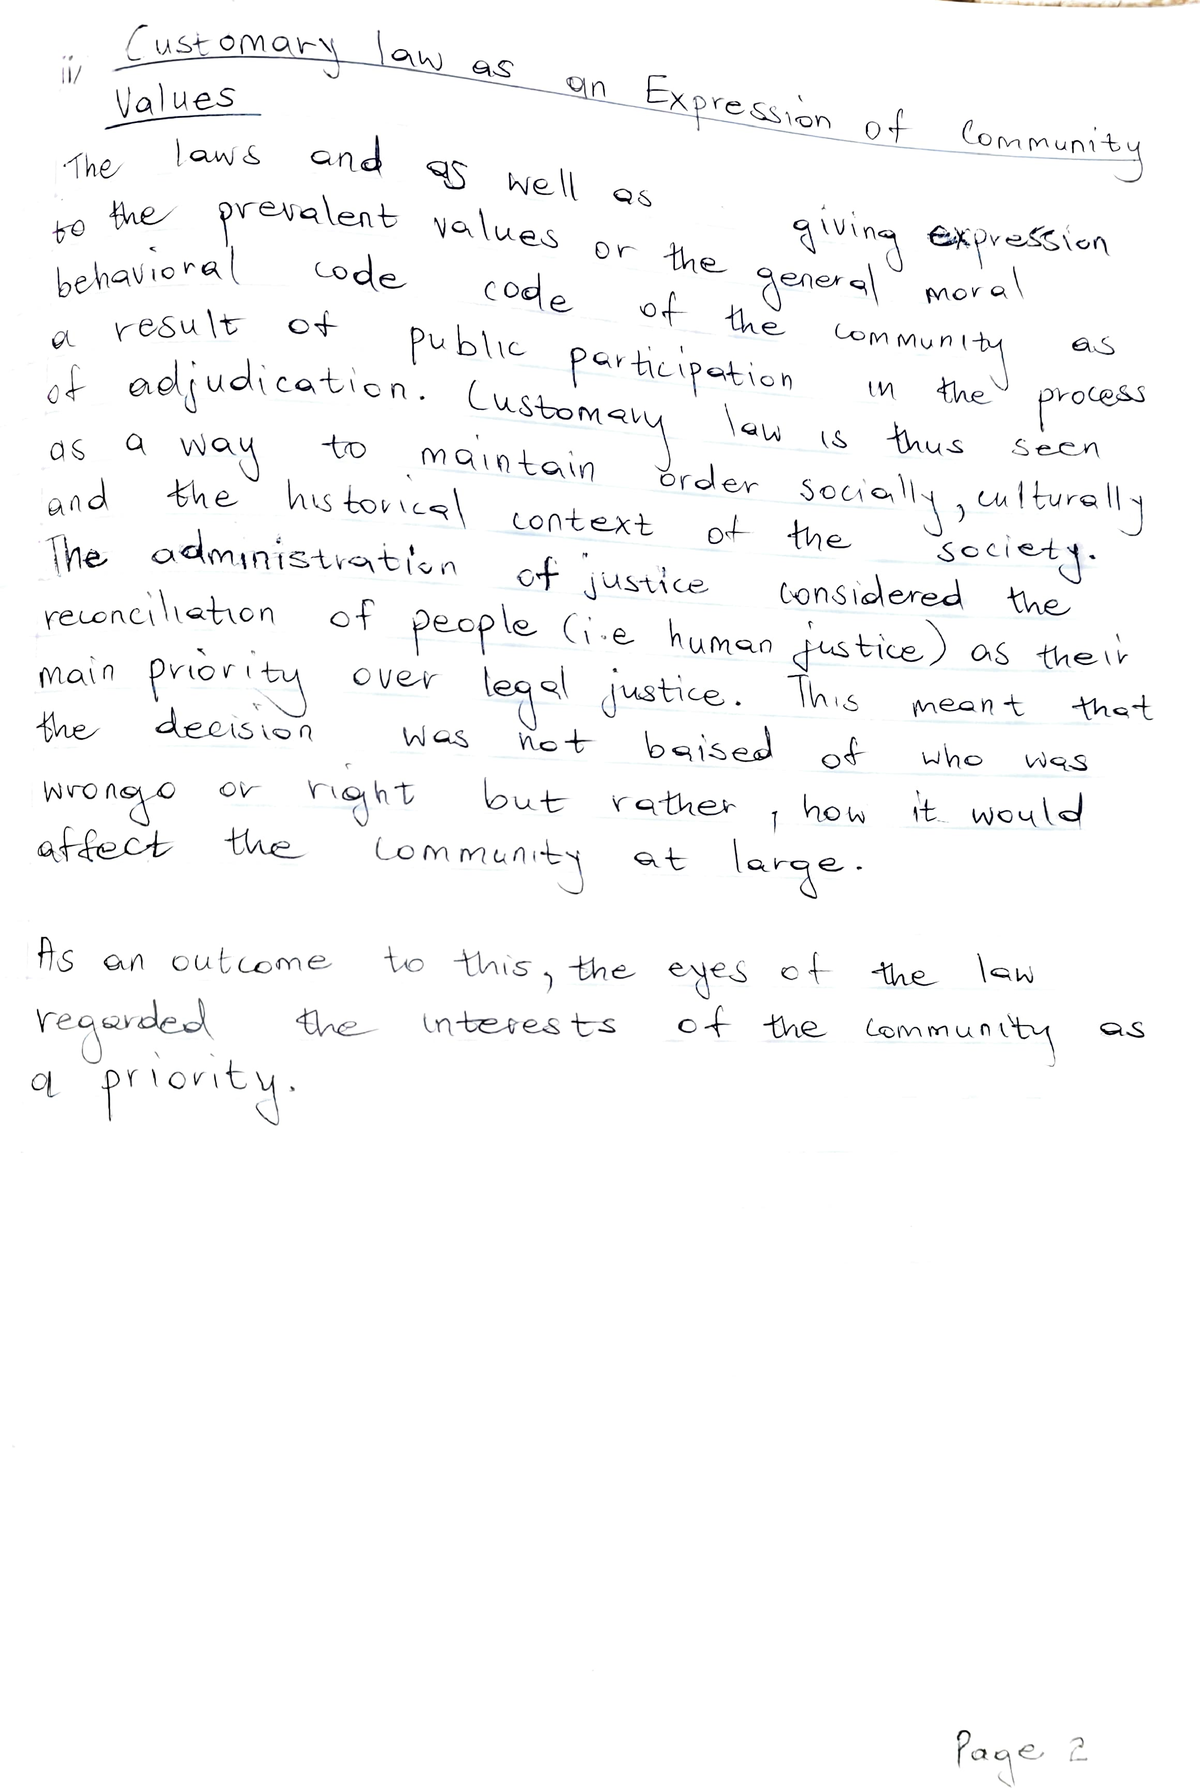 ii/ Customary law as an Expression of Community
Values
The laws and as well as giving expression
to the prevalent values or the general moral
behavioral code code of the community as
a result of public participation in the process
of adjudication. Customary law is thus seen
as a way to maintain order socially, culturally
and the historical context of the society.
The administration of justice considered the
reconciliation of people (i.e human justice) as their
main priority over legal justice. This meant that
the decision was not baised of who was
wrongo or right but rather, how it would
affect the community at large.
As an outcome to this, the eyes of the law
regarded the interests of the community as
a priority.
Page 2